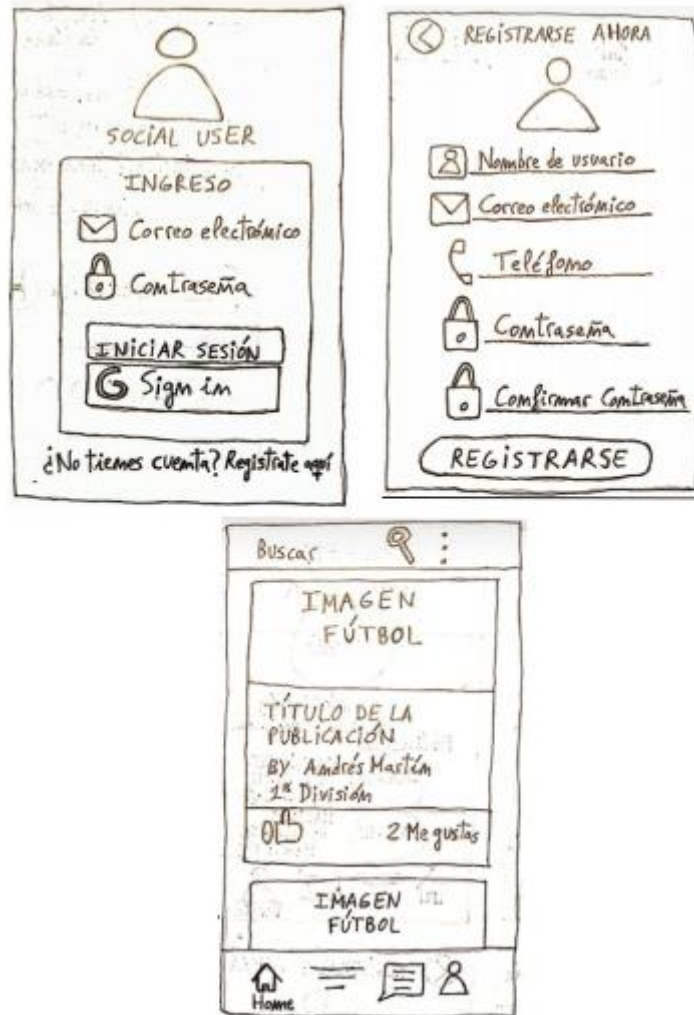 SOCIAL USER
INGRESO
Correo electrónico
Contraseña
INICIAR SESIÓN
G Sign in
¿No tienes cuenta? Registrate aquí
REGISTRARSE AHORA
Nombre de usuario
Correo electrónico
Teléfono
Contraseña
Confirmar Contraseña
REGISTRARSE
Buscar
IMAGEN
FÚTBOL
TÍTULO DE LA
PUBLICACIÓN
BY Andrés Martín
1ª División
2 Me gustas
IMAGEN
FÚTBOL
Home